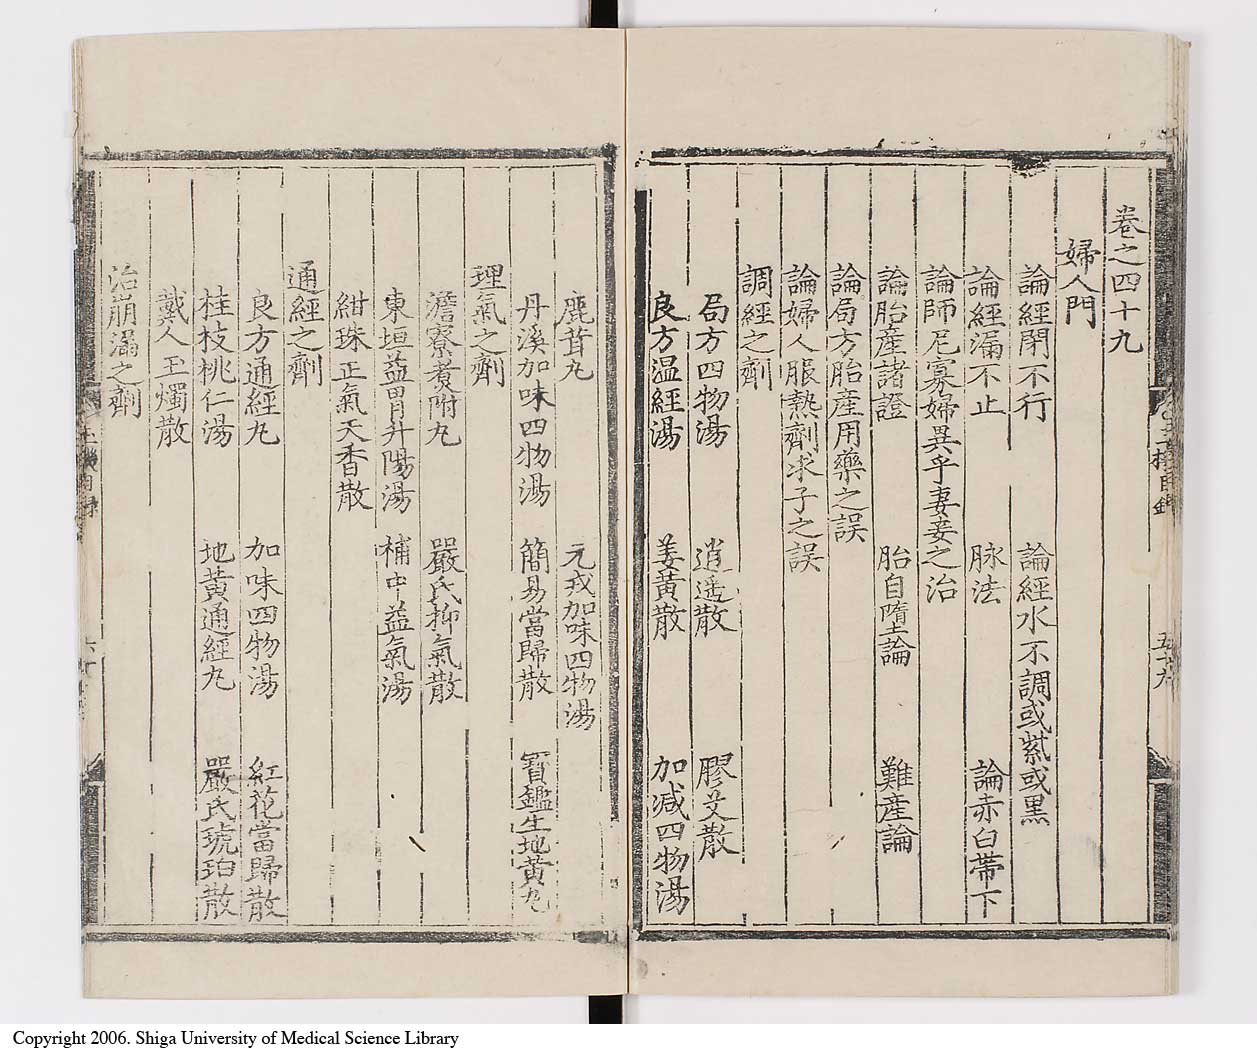 卷之四十九
婦人門
論經閉不行 論經水不調或紫或黑
論經漏不止 脉法 論赤白帶下
論師尼寡婦異乎妻妾之治
論胎產諸證 胎自墮論 難產論
論局方胎產用藥之誤
論婦人服熱劑求子之誤
調經之劑
局方四物湯 逍遥散 膠艾散
良方温經湯 姜黃散 加减四物湯
鹿茸丸 元戎加味四物湯
丹溪加味四物湯 簡易當歸散 寳鑑生地黃丸
理氣之劑
澹寮煮附丸 嚴氏抑氣散
東垣益胃升陽湯 補中益氣湯
紺珠正氣天香散
通經之劑
良方通經丸 加味四物湯 紅花當歸散
桂枝桃仁湯 地黃通經丸 嚴氏琥珀散
戴人玉燭散
治崩漏之劑
Copyright 2006. Shiga University of Medical Science Library